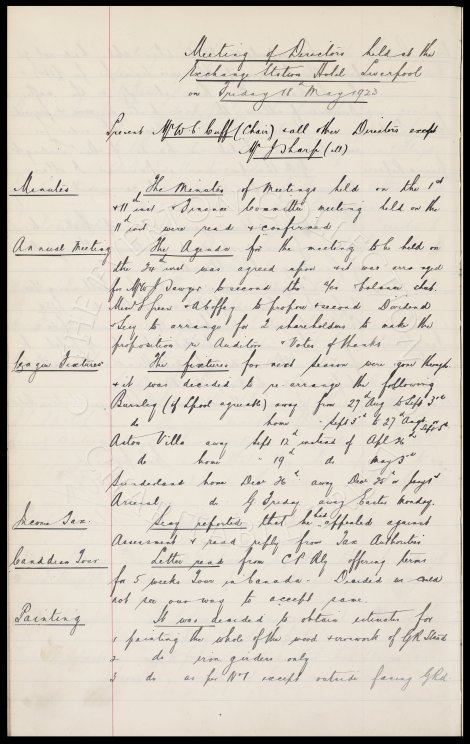 Meeting of Directors held at the
Exchange Station Hotel Liverpool
on Friday 18th May 1923
Present Mr W C Cuff (Chair) & all other Directors except
Mr J Sharp (ill)
Minutes The Minutes of Meetings held on the 1st
& 11th inst & Finance Committee meeting held on the
11th inst were read & confirmed
Annual Meeting The Agenda for the meeting to be held on
the 24th inst was agreed upon & it was arranged
for Mr W J Sawyer to second the a/cs & balance sheet.
Messrs & Coffey to propose & second Dividend
& Secy to arrange for 2 shareholders to make the
proposition re Auditors & Votes of thanks
League Fixtures The fixtures for next season were gone through
& it was decided to re-arrange the following
Burnley (if L'pool agreeable) away from 27th Aug to Sept 3rd
do home " Sept 3rd to 27th Aug or Sept 5th
Aston Villa away Sept 12th instead of Apl
do home " 19th do May 3rd
Sunderland home Decr 26th away Decr 25th or Jany 1st
Arsenal do G Friday away Easter Monday.
Income Tax. Secy reported that he had appealed against
Assessment & read reply from Tax Authorities
Canadian Tour Letter read from C P Rly offering terms
for 5 weeks Tour in Canada. Decided we could
not see our way to accept same.
Painting It was decided to obtain estimates for
1 painting the whole of the wood & ironwork of G R Stand
2 do iron girders only
3 do as per No 1 except outside facing G Rd.